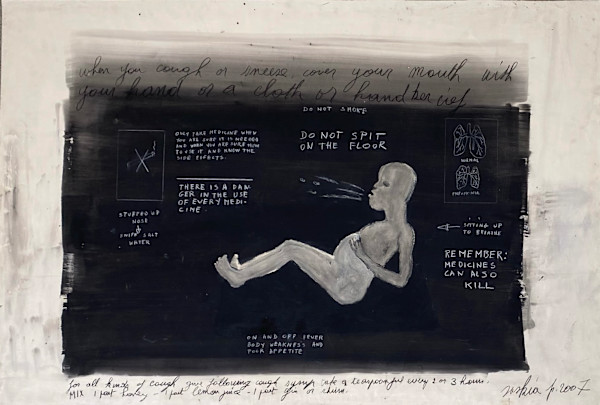 when you cough or sneeze, cover your mouth with
your hand or a cloth or handkercief
DO NOT SMOKE
ONLY TAKE MEDICINE WHEN
YOU ARE SURE IT IS NEEDED
AND WHEN YOU ARE SURE HOW
TO USE IT AND KNOW THE
SIDE EFFECTS.
THERE IS A DAN
GER IN THE USE
OF EVERY MEDI-
CINE.
DO NOT SPIT
ON THE FLOOR
NORMAL
STUFFED UP
NOSE
SNIFF SALT
WATER
SITTING UP
TO BREATHE
REMEMBER:
MEDICINES
CAN ALSO
KILL
ON AND OFF FEVER
BODY WEAKNESS AND
POOR APPETITE
For all kinds of cough give following cough syrup: take a teaspoonful every 2 or 3 hours.
MIX 1 part honey - 1 part lemon juice - 1 part gin or
2007